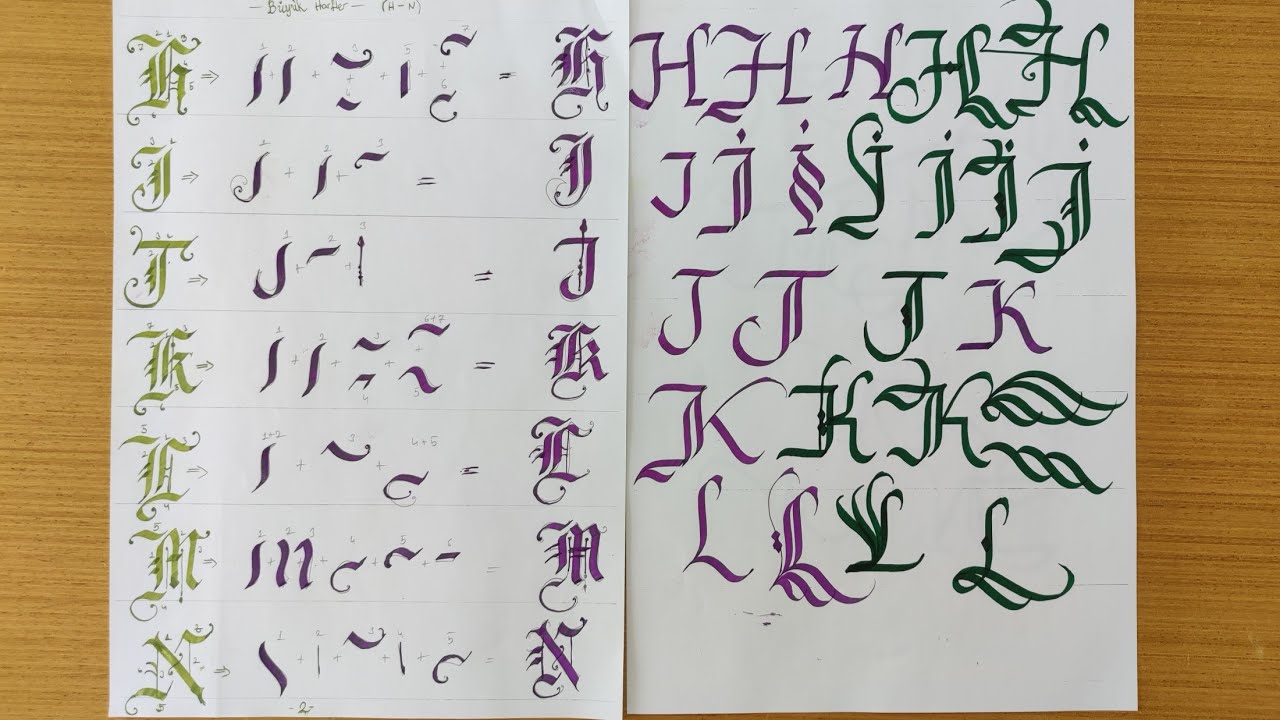 — Büyük Harfler — (H-N)
H ⇒ 1 + 2 + 3 4 + 5 + 6 7 = H
I ⇒ 1 + 2 + 3 = I
J ⇒ 1 + 2 + 3 = J
K ⇒ 1 + 2 + 3 4 + 5 6+7 = K
L ⇒ 1+2 + 3 + 4+5 = L
M ⇒ 1 + 2 + 3 + 4 + 5 + 6 = M
N ⇒ 1 + 2 + 3 + 4 + 5 = N
-2-
H H H H H
I İ İ İ İ İ İ
J J J K
K K K
L L L L